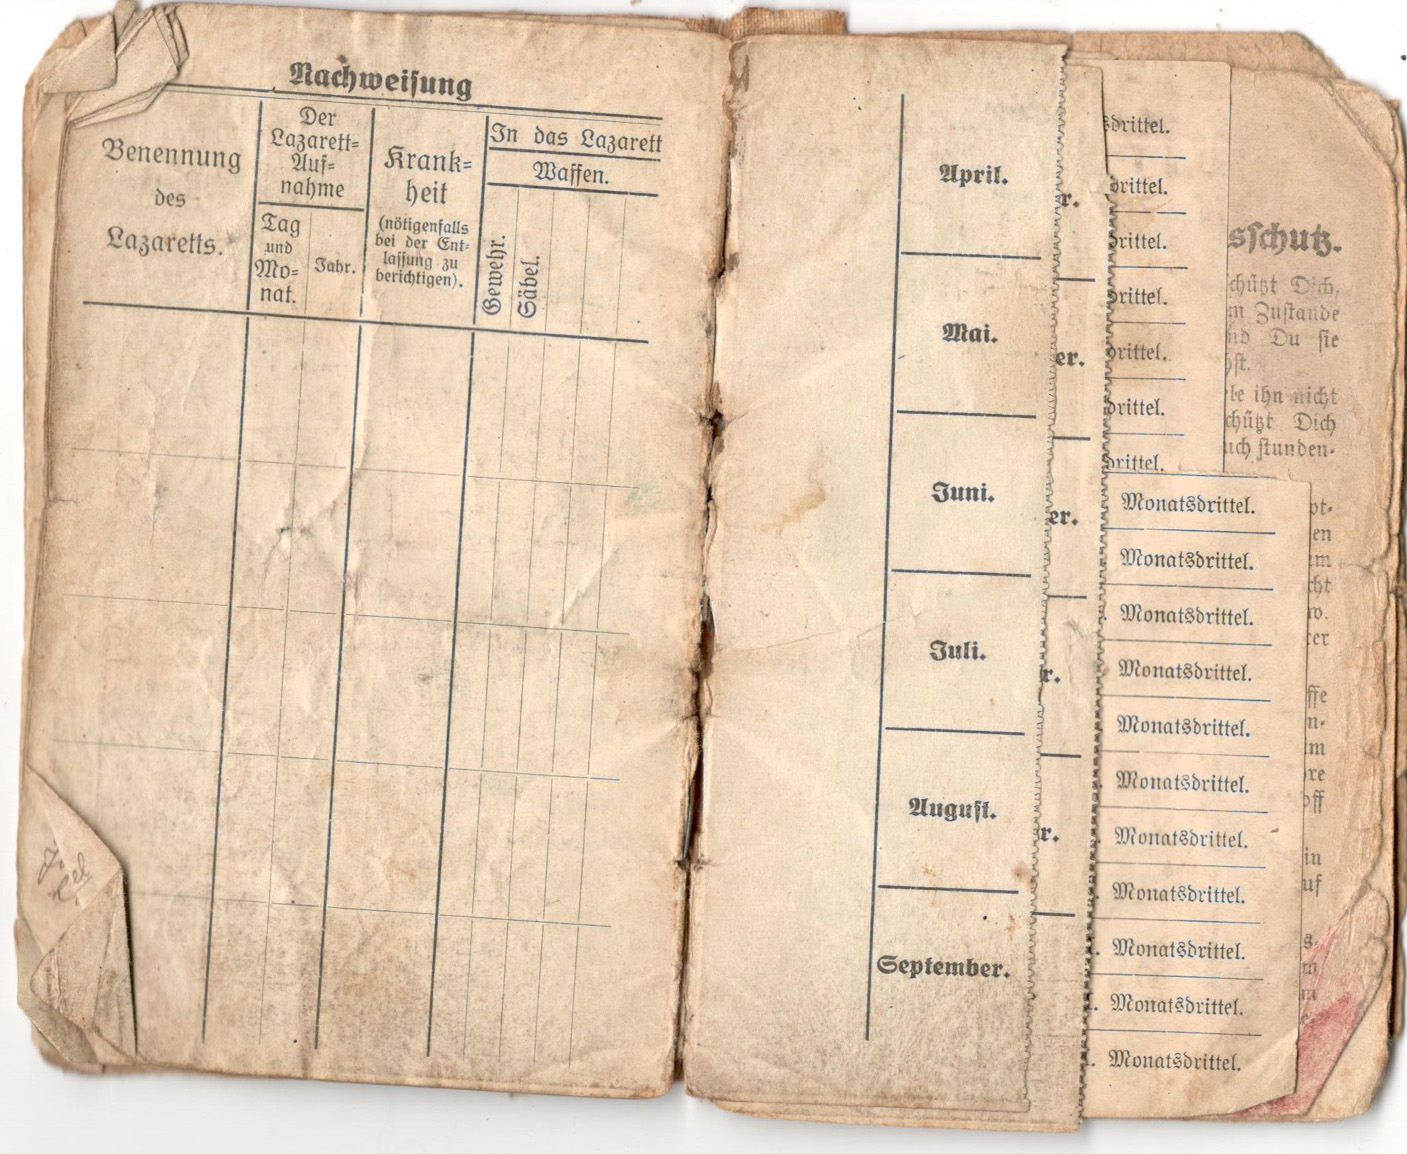 Nachweisung
Benennung
des
Lazaretts.
Der
Lazarett=
Auf=
nahme
Tag
und
Mo=
nat.
Jahr.
Krank=
heit
(nötigenfalls
bei der Ent=
lassung zu
berichtigen).
In das Lazarett
Waffen.
Gewehr.
Säbel.
April.
Mai.
Juni.
Juli.
August.
September.
r.
er.
er.
r.
r.
sdrittel.
drittel.
drittel.
drittel.
drittel.
drittel.
drittel.
Monatsdrittel.
Monatsdrittel.
. Monatsdrittel.
Monatsdrittel.
Monatsdrittel.
. Monatsdrittel.
. Monatsdrittel.
. Monatsdrittel.
. Monatsdrittel.
. Monatsdrittel.
. Monatsdrittel.
sschutz.
chützt Dich,
m Zustande
nd Du sie
hst.
be ihn nicht
chützt Dich
uch stunden-
ot-
en
em
cht
w.
ter
ffe
n-
m
re
off
in
uf
s-
m